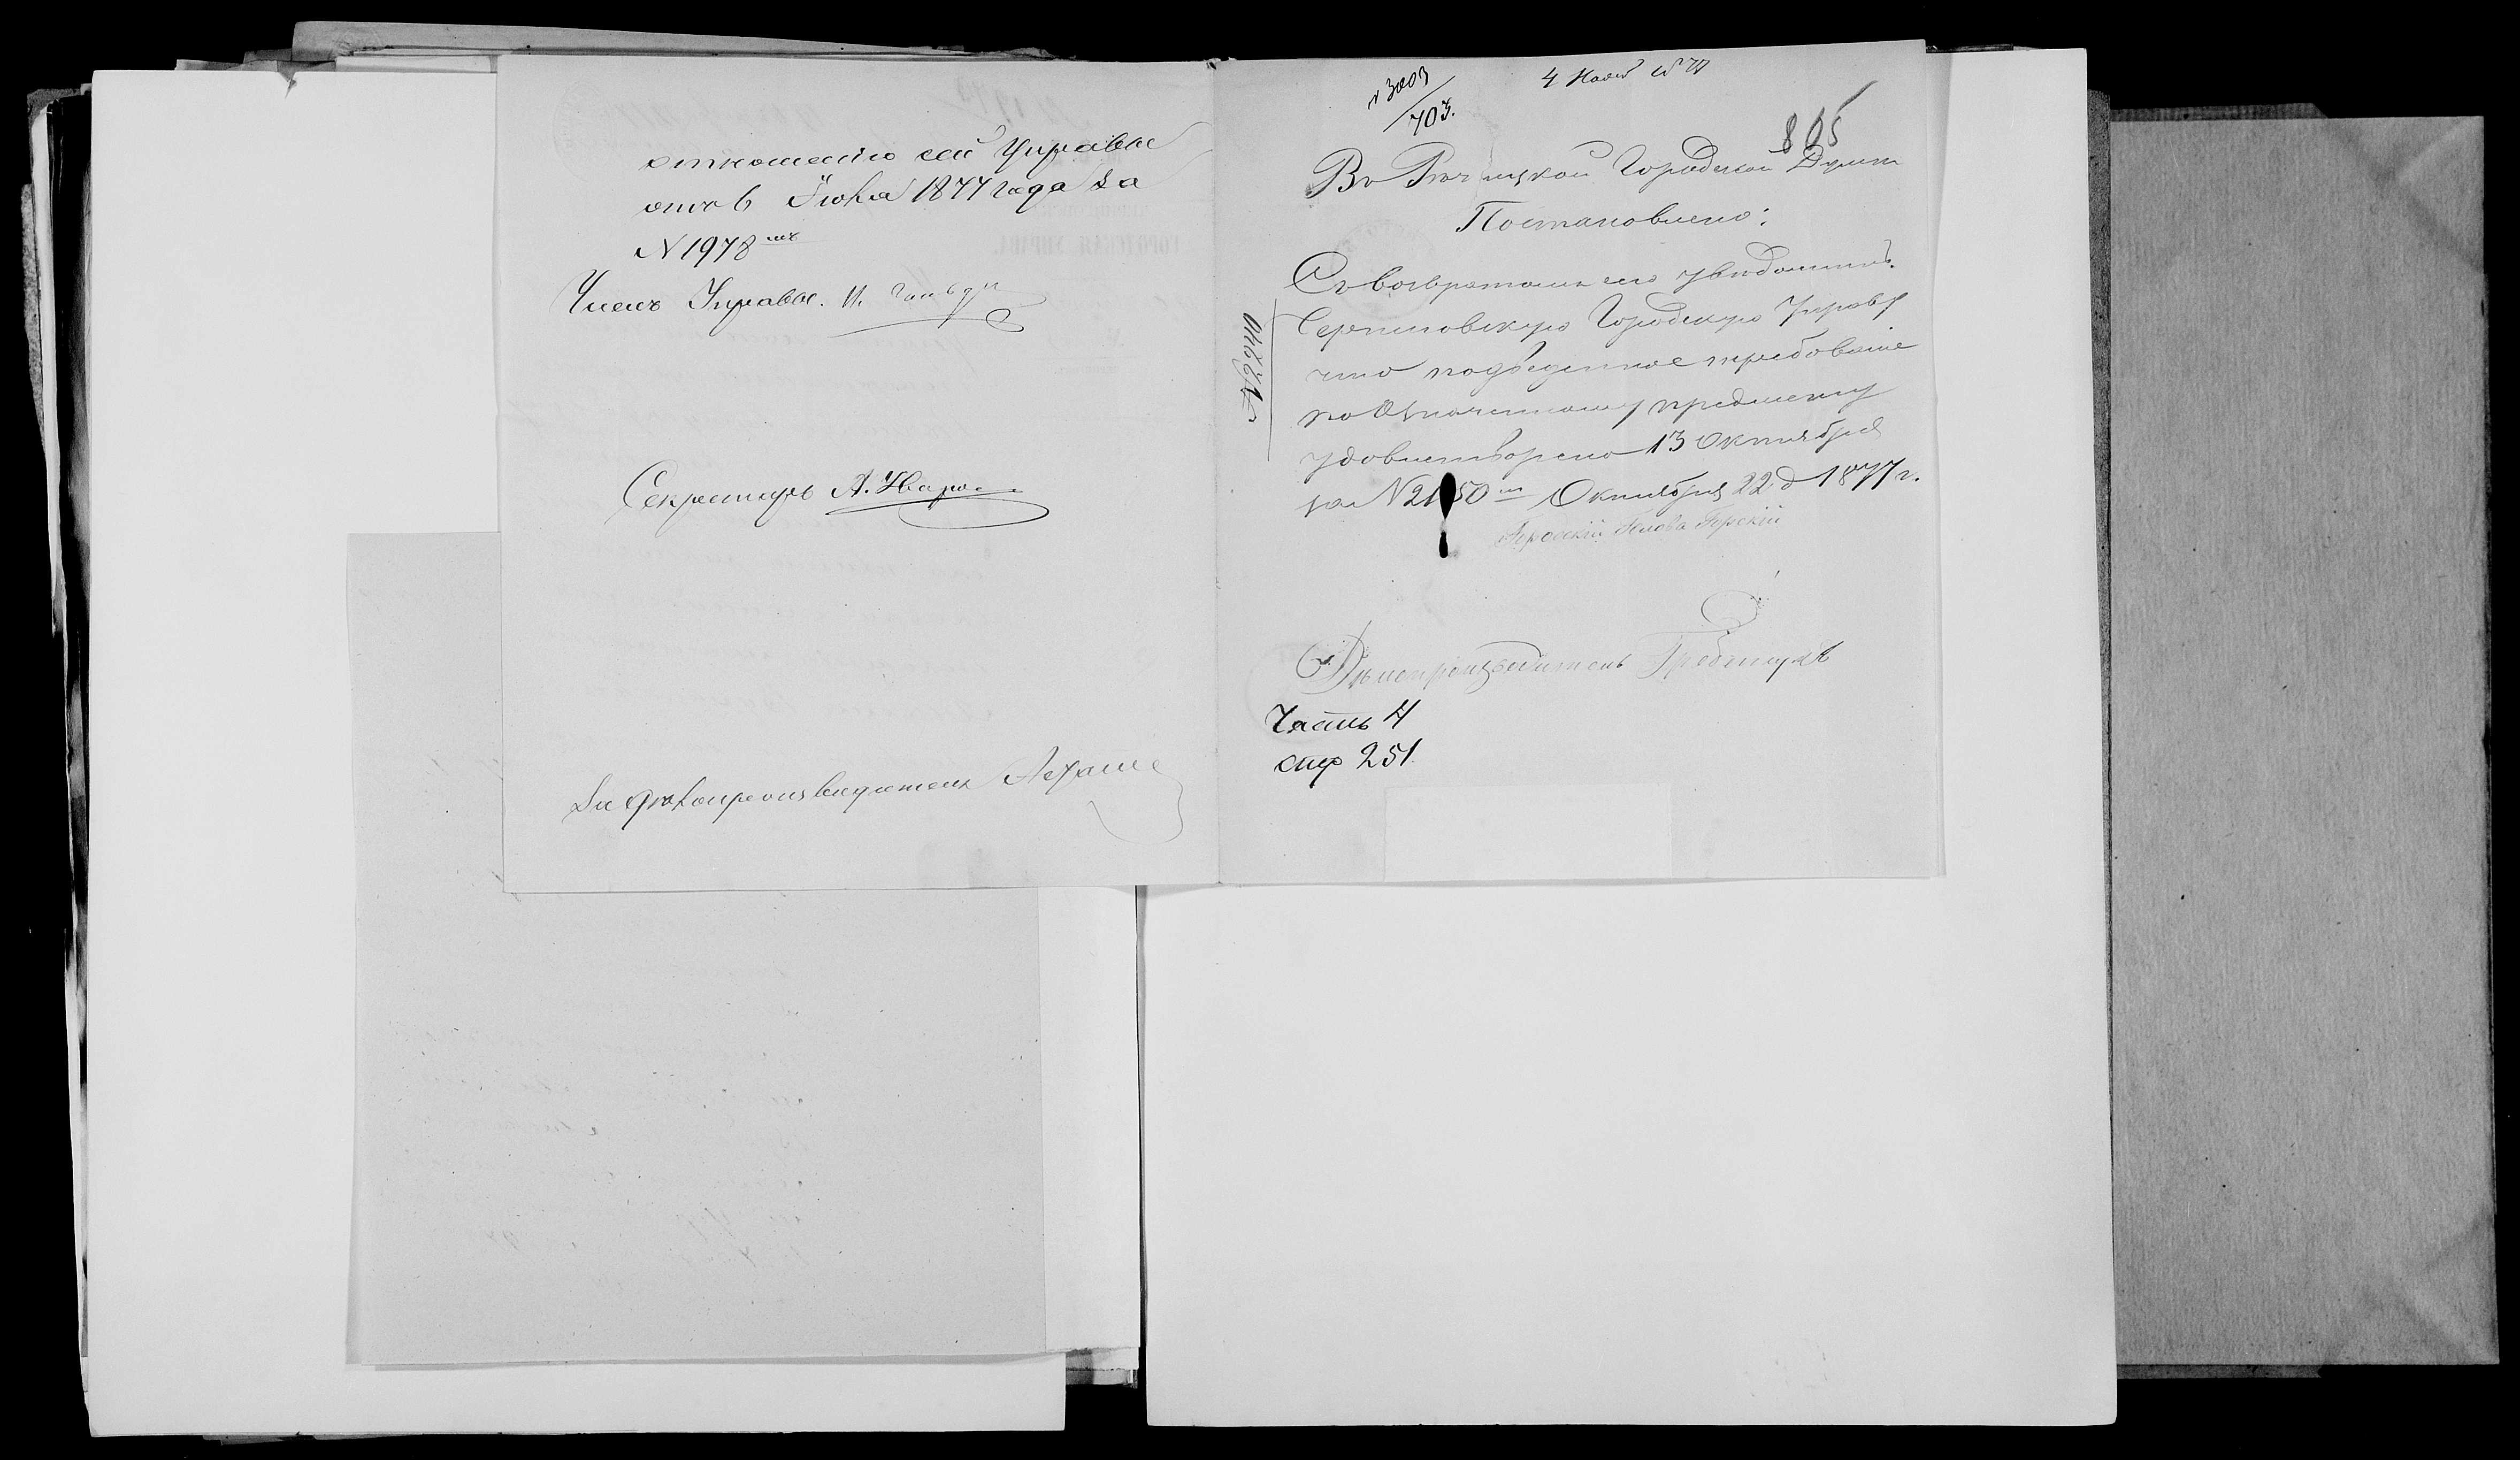 отношенію сей Управы
отъ 6 Іюля 1877 года за
N 1978мъ
Членъ Управы. И.
Секретарь А. Уваро
За дѣлопроизводителя
N 3003
703.
4 Нояб 77
805
Въ Рѣчицкой Городской Думѣ
Постановлено:
Съ возвратомъ сего увѣдомить
Серпиловскую Городскую Управу
что подведенное требованіе
по означенному предмету
удовлетворено 13 Октября
за N 2150 м Октября 22 д 1877 г.
Городской Голова Горскій
Дѣлопроизводитель
Часть 4
стр 251